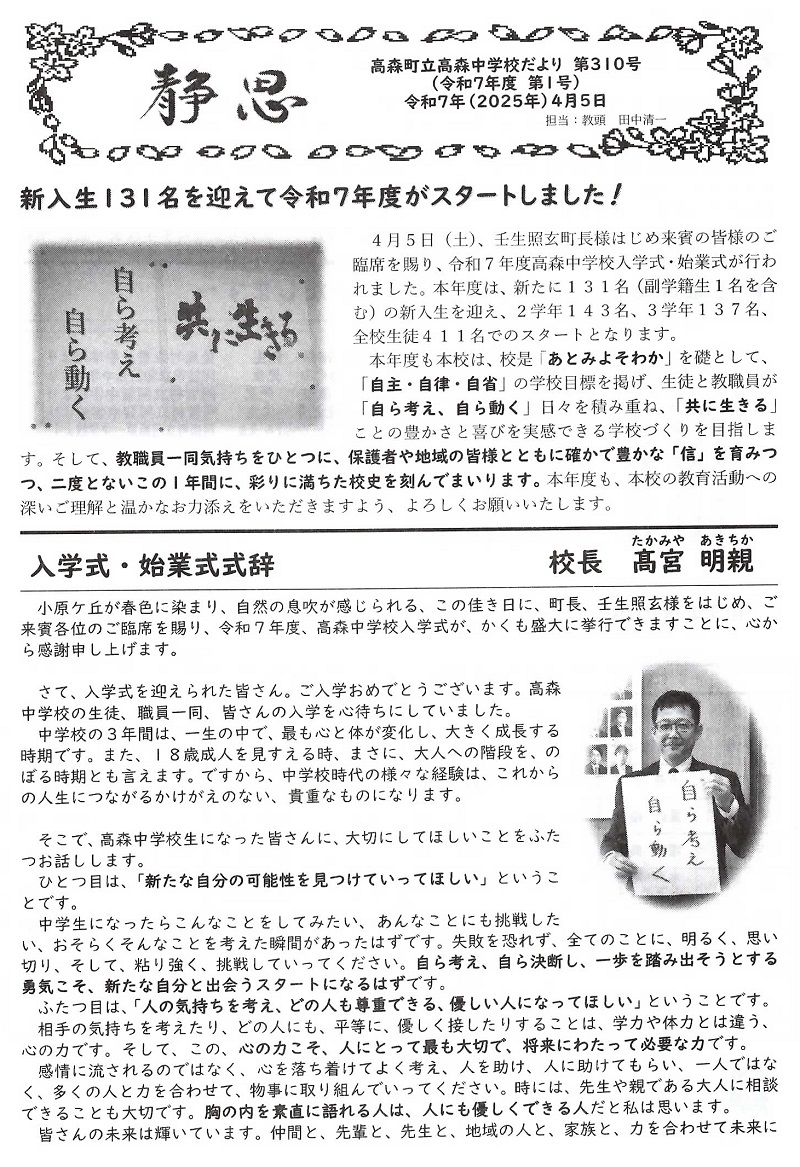 静思
高森町立高森中学校だより 第310号
(令和7年度 第1号)
令和7年(2025年)4月5日
担当:教頭 田中清一
新入生131名を迎えて令和7年度がスタートしました!
自ら考え
自ら動く
共に生きる
4月5日(土)、壬生照玄町長様はじめ来賓の皆様のご
臨席を賜り、令和7年度高森中学校入学式・始業式が行わ
れました。本年度は、新たに131名(副学籍生1名を含
む)の新入生を迎え、2学年143名、3学年137名、
全校生徒411名でのスタートとなります。
本年度も本校は、校是「あとみよそわか」を礎として、
「自主・自律・自省」の学校目標を掲げ、生徒と教職員が
「自ら考え、自ら動く」日々を積み重ね、「共に生きる」
ことの豊かさと喜びを実感できる学校づくりを目指しま
す。そして、教職員一同気持ちをひとつに、保護者や地域の皆様とともに確かで豊かな「信」を育みつ
つ、二度とないこの1年間に、彩りに満ちた校史を刻んでまいります。本年度も、本校の教育活動への
深いご理解と温かなお力添えをいただきますよう、よろしくお願いいたします。
入学式・始業式式辞
校長 髙宮 明親
たかみや あきちか
小原ケ丘が春色に染まり、自然の息吹が感じられる、この佳き日に、町長、壬生照玄様をはじめ、ご
来賓各位のご臨席を賜り、令和7年度、高森中学校入学式が、かくも盛大に挙行できますことに、心か
ら感謝申し上げます。
さて、入学式を迎えられた皆さん。ご入学おめでとうございます。高森
中学校の生徒、職員一同、皆さんの入学を心待ちにしていました。
中学校の3年間は、一生の中で、最も心と体が変化し、大きく成長する
時期です。また、18歳成人を見すえる時、まさに、大人への階段を、の
ぼる時期とも言えます。ですから、中学校時代の様々な経験は、これから
の人生につながるかけがえのない、貴重なものになります。
自ら考え
自ら動く
そこで、高森中学校生になった皆さんに、大切にしてほしいことをふた
つお話しします。
ひとつ目は、「新たな自分の可能性を見つけていってほしい」というこ
とです。
中学生になったらこんなことをしてみたい、あんなことにも挑戦した
い、おそらくそんなことを考えた瞬間があったはずです。失敗を恐れず、全てのことに、明るく、思い
切り、そして、粘り強く、挑戦していってください。自ら考え、自ら決断し、一歩を踏み出そうとする
勇気こそ、新たな自分と出会うスタートになるはずです。
ふたつ目は、「人の気持ちを考え、どの人も尊重できる、優しい人になってほしい」ということです。
相手の気持ちを考えたり、どの人にも、平等に、優しく接したりすることは、学力や体力とは違う、
心の力です。そして、この、心の力こそ、人にとって最も大切で、将来にわたって必要な力です。
感情に流されるのではなく、心を落ち着けてよく考え、人を助け、人に助けてもらい、一人ではな
く、多くの人と力を合わせて、物事に取り組んでいってください。時には、先生や親である大人に相談
できることも大切です。胸の内を素直に語れる人は、人にも優しくできる人だと私は思います。
皆さんの未来は輝いています。仲間と、先輩と、先生と、地域の人と、家族と、力を合わせて未来に